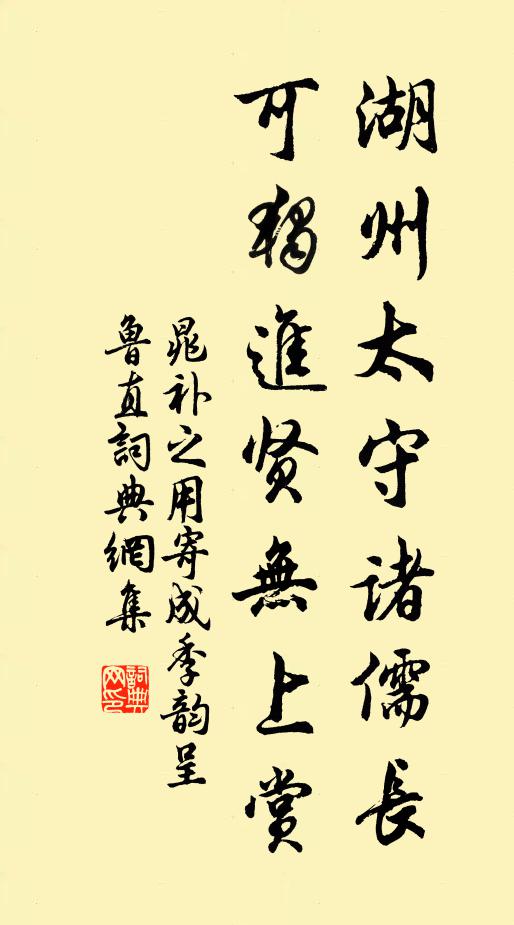 湖州太守诸儒長
可獨進贤無上赏
晁补之用寄成季韵呈
魯直詞典網集
詞典网印